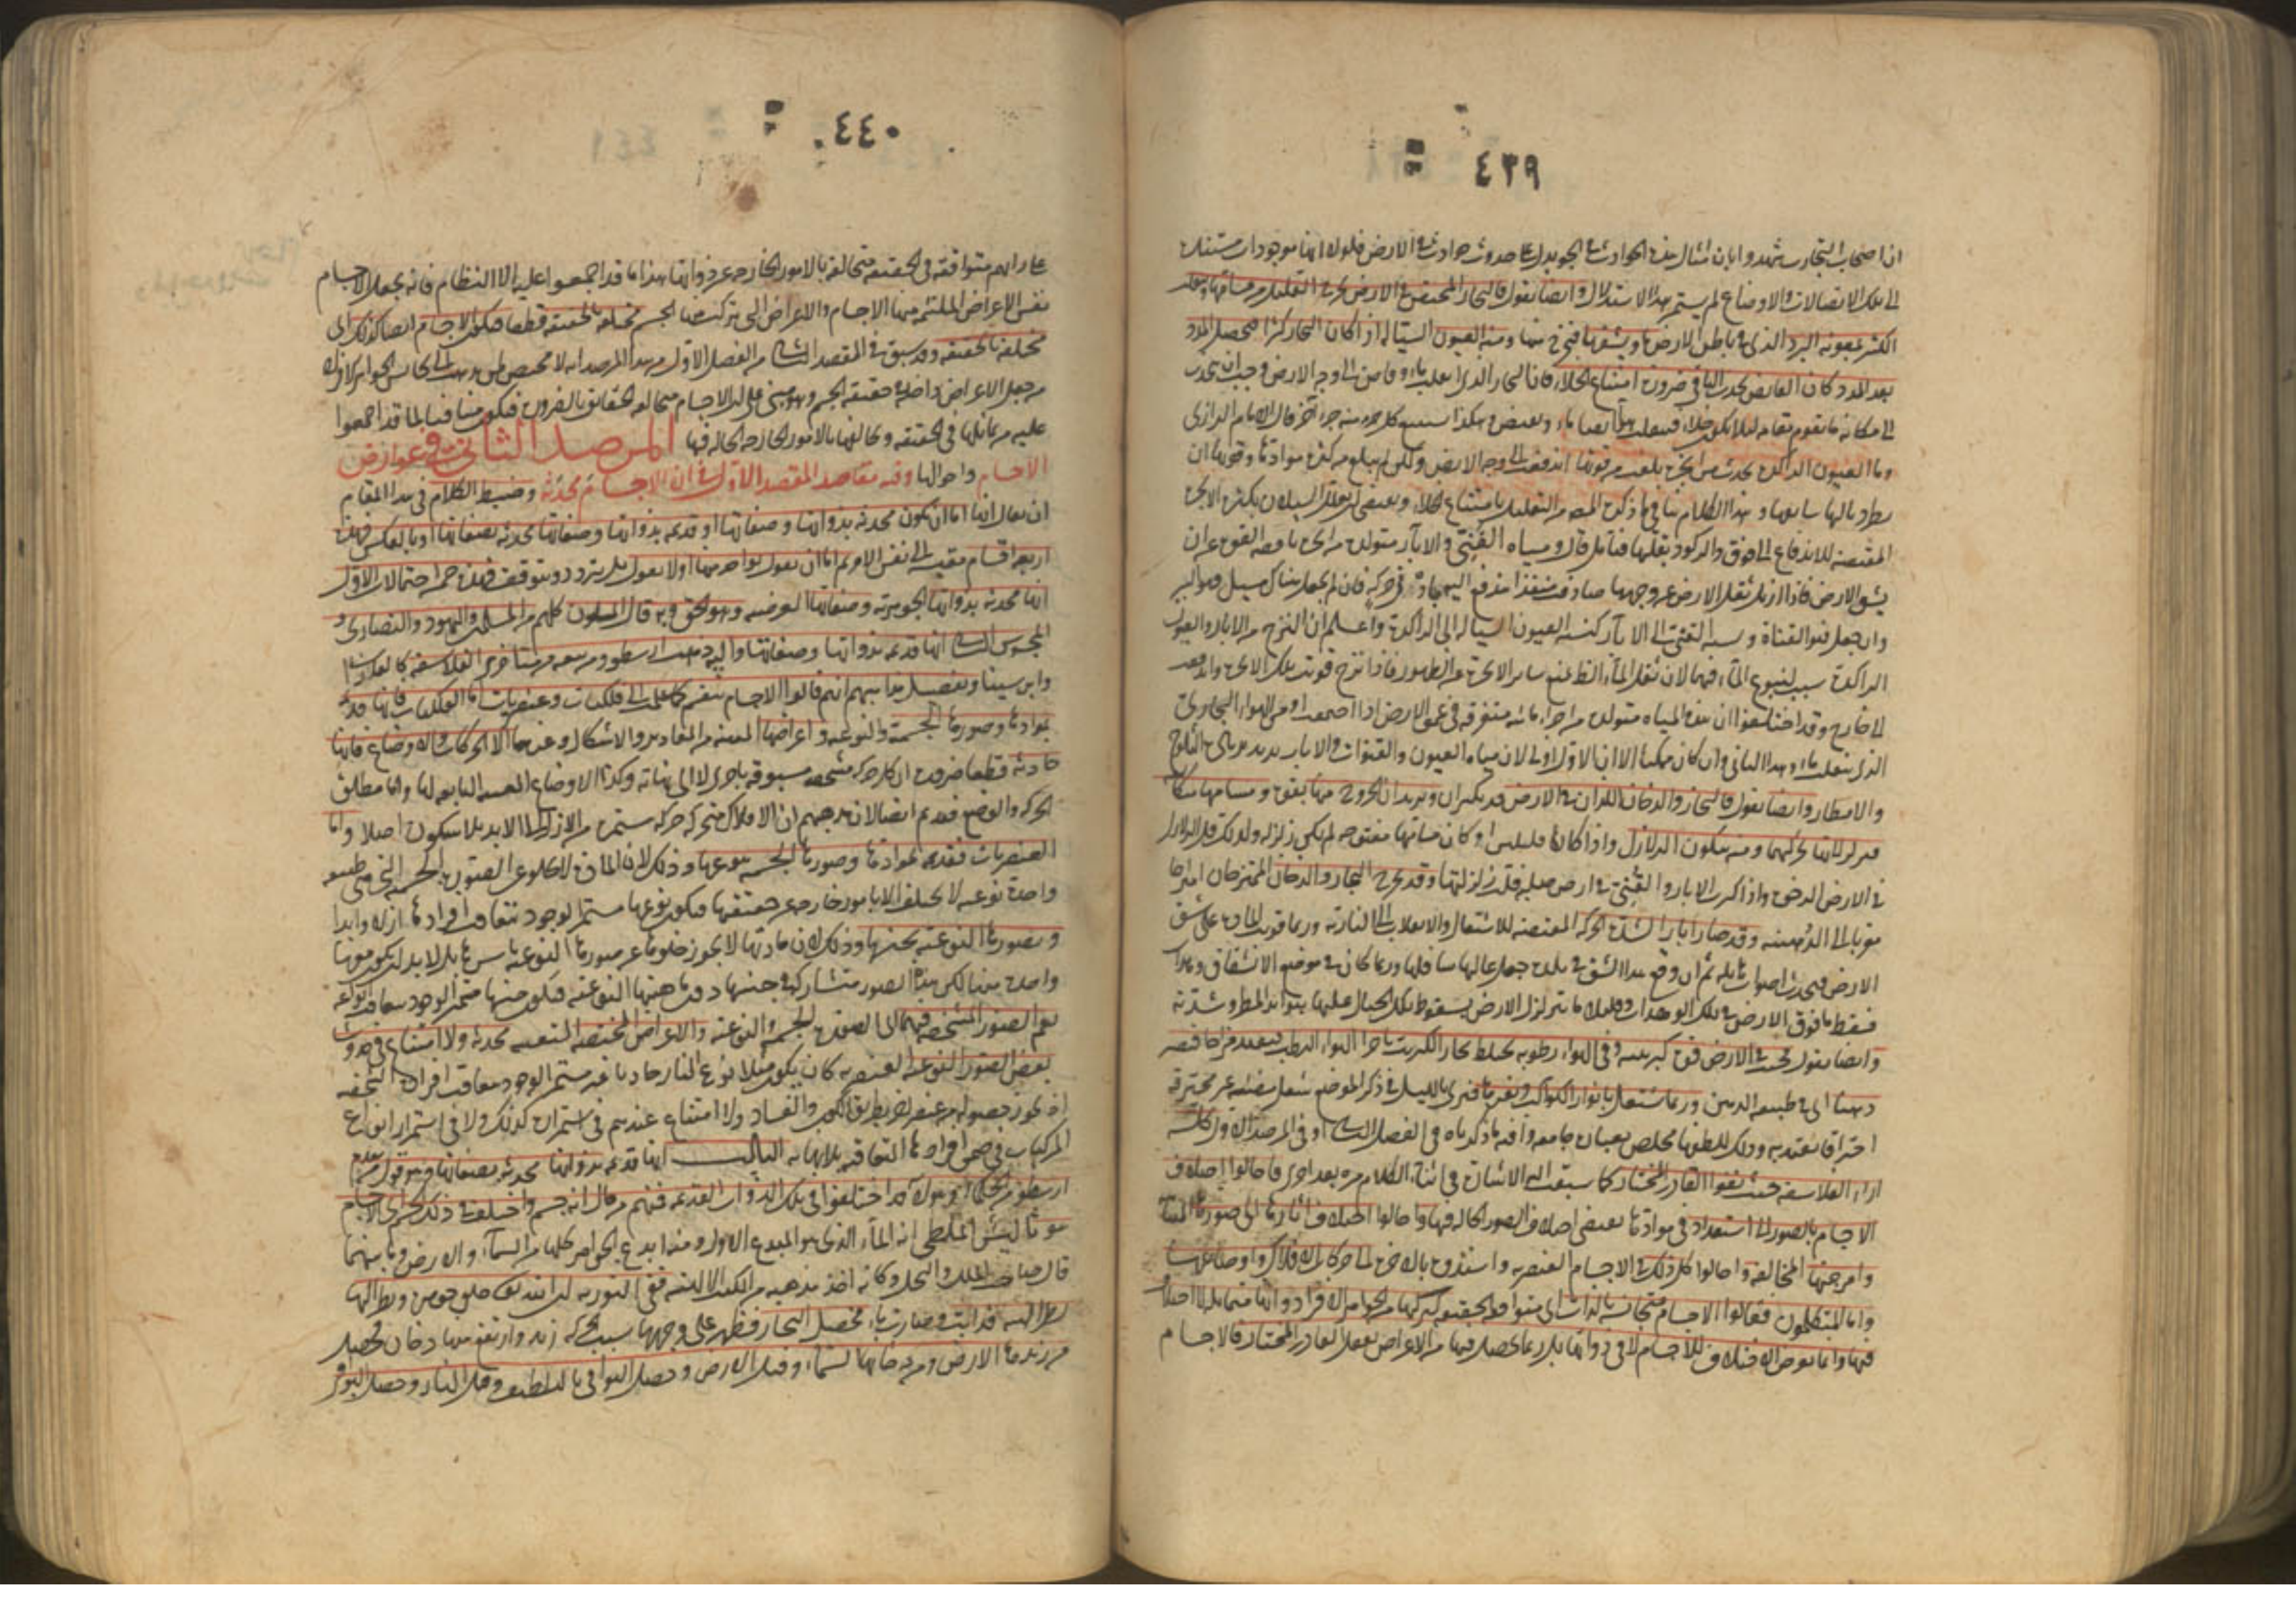 ٤٣٩
ان اصحاب التجارب شهدوا بان امثال هذه الحوادث في الجو يدل على حدوث حوادث في الارض فلولا انها موجودات مستندة
الى تلك الاتصالات والاوضاع لم يستم هذا الاستدلال وايضا نقول فالبخار المحتقن في الارض
اكثر بمعونة البرد الذي في باطن الارض ويشقها فتخرج منها ومنه العيون السيالة اذا كان البخار كثيرا
بعد المدد كان الفايض يجذب الباقي ضرورة امتناع الخلاء فان البخار الذي انقلب ماء وفاض الى وجه الارض وجب ان ينجذب
الى مكانه ما يقوم مقامه لئلا يكون خلاء فينقلب هو ايضا ماء ويفيض وهكذا استتبع كل جزء منه جزء آخر قال الامام الرازي
واما العيون الراكدة تحدث من ابخرة بلغت من قوتها ان اندفعت الى وجه الارض ولكن لم يبلغ من كثرة موادها وقوتها ان
يطرد تاليها سابقها وهذا الكلام ينافي ما ذكره المصنف من التعليل بامتناع الخلاء ويقتضي تعليل السيلان بكثرة الابخرة
المقتضية للاندفاع الى فوق والركود بقلتها فتأمل قال ومياه القني والآبار متولدة من ابخرة ناقصة القوة عن ان
يشق الارض فاذا ازيل ثقل الارض عن وجهها صادفت منفذا تندفع اليه بادنى حركة فان لم يجعل هناك مسيل فهو البئر
وان جعل فهو القناة ونسبة القني الى الآبار كنسبة العيون السيالة الى الراكدة واعلم ان النزح من الآبار والعيون
الراكدة سبب لنبوع الماء فيهما لان ثقل الماء الظاهر يمنع سائر الابخرة عن الظهور فاذا نزح قويت تلك الابخرة واندفعت
الى خارج وقد اختلفوا ان هذه المياه متولدة من اجزاء مائية متفرقة في عمق الارض اذا اجتمعت او من الهواء البخاري
الذي ينقلب ماء وهذا الثاني وان كان ممكنا الا ان الاول اولى لان مياه العيون والقنوات والآبار يزيد بزيادة الثلوج
والامطار وايضا نقول فالبخار والدخان اللذان في الارض قد يكثران ويريدان الخروج منها بقوة ومسامها متكاثفة
فيزلزلانها بحركتهما ومنه يتكون الزلازل واذا كانا قليلين او كان مسامها مفتوحة لم يكن زلزلة ولذلك قل الزلازل
في الارض الرخوة واذا كثرت الآبار والقني في ارض صلبة قلت زلزلتها وقد يخرج البخار والدخان الممتزجان امتزاجا
مقربا الى الدهنية وقد صارا نارا لشدة الحركة المقتضية للاشتعال والانقلاب الى النارية وربما قويت المادة على شق
الارض فيحدث اصوات هائلة ثم ان وقع هذا الشق في بلدة جعل عاليها سافلها وربما كان في موضع الانشقاق وهدات
فسقط ما فوق الارض في تلك الوهدات وقليلا ما يتزلزل الارض بسقوط تلك الجبال عليها بتواتر المطر وشدته
وايضا نقول تحدث في الارض قوة كبريتية وفي الهواء رطوبة فيختلط بخار الكبريت باجزاء الهواء الرطب فيفيد مزاجا فيصير
دهنيا اي في طبيعة الدهن وربما يشتعل بانوار الكواكب وبغيرها فيرى بالليل في ذلك الموضع شعل مضيئة غير محترقة
احتراقا يعتد به وذلك للطفها ملخص بعبارة جامعة وافية ما ذكرناه في الفصل الثاني او في المرصد الاول كله
آراء الفلاسفة حيث نفوا القادر المختار كما سبقت اليه الاشارة في اثناء الكلام مرة بعد اخرى فاحالوا اختلاف
الاجسام بالصور الى استعداد في موادها يقتضي اختلاف الصور الحالة فيها واحالوا اختلاف آثارها الى صورها المتباينة
وامزجتها المخالفة واحالوا كل ذلك في الاجسام العنصرية واستندوه بالاخرة الى حركات الافلاك واوضاعها
واما المتكلمون فقالوا الاجسام متجانسة بالذات اي متوافقة الحقيقة لتركبها من الجواهر الافراد وانها متماثلة لا اختلاف
فيها وانما يعرض الاختلاف للاجسام لا في ذواتها بل بما يحصل فيها من الاعراض بفعل القادر المختار فالاجسام
٤٤٠
على رأيهم متوافقة في الحقيقة متخالفة بالامور الخارجة عن ذواتها هذا ما قد اجمعوا عليه الا النظام فانه يجعل الاجسام
نفس الاعراض الملتئم منها الاجسام والاعراض التي يتركب منها الجسم مختلفة بالحقيقة قطعا فيكون الاجسام ايضا كذلك اي
مختلفة بالحقيقة وقد سبق في المقصد الثاني من الفصل الاول من هذا المرصد انه لا محيص لمن ذهب الى تجانس الجواهر الافراد
من جعل الاعراض داخلة في حقيقة الجسم وهو مبني على ان الاجسام متخالفة الحقائق بالضرورة فيكون منافيا لما قد اجمعوا
عليه من تماثلها في الحقيقة وتخالفها بالامور الخارجة الحالة فيها المرصد الثاني في عوارض
الاجسام واحوالها وفيه مقاصد المقصد الاول في ان الاجسام محدثة وضبط الكلام في هذا المقام
ان يقال انها اما ان تكون محدثة بذواتها وصفاتها او قديمة بذواتها وصفاتها او قديمة بذواتها محدثة بصفاتها او بالعكس فهذه
اربعة اقسام مقيسة الى نفس الامر ثم اما ان نقول بواحد منها اولا نقول بل يتردد ويتوقف فهذه خمسة احتمالات الاول
انها محدثة بذواتها الجوهرية وصفاتها العرضية وهو الحق وبه قال المليون كلهم من المسلمين واليهود والنصارى و
المجوس الثاني انها قديمة بذواتها وصفاتها واليه ذهب ارسطو ومن تبعه من متأخري الفلاسفة كالفارابي
وابن سينا وتفصيل مذاهبهم انهم قالوا الاجسام تنقسم كما علمت الى فلكيات وعنصريات اما الفلكيات فانها قديمة
بموادها وصورها الجسمية والنوعية واعراضها المعينة من المقادير والاشكال وغيرهما الا الحركات والاوضاع فانها
حادثة قطعا ضرورة ان كل حركة مشخصة مسبوقة باخرى لا الى نهاية وكذا الاوضاع المعينة التابعة لها واما مطلق
الحركة والوضع فقديم ايضا لان مذهبهم ان الافلاك متحركة حركة مستمرة من الازل الى الابد بلا سكون اصلا واما
العنصريات فقديمة بموادها وصورها الجسمية بنوعها وذلك لان المادة لا تخلو عن الصورة الجسمية التي هي طبيعة
واحدة نوعية لا تختلف الا بامور خارجة عن حقيقتها فيكون نوعها مستمر الوجود بتعاقب افرادها ازلا وابدا
وبصورها النوعية بجنسها وذلك لان مادتها لا يجوز خلوها عن صورها النوعية باسرها بل لا بد ان يكون معها
واحدة منها لكن هذه الصور متشاركة في جنسها دون ماهيتها النوعية فيكون جنسها مستمر الوجود بتعاقب انواعه
نعم الصور المشخصة فيهما اي الصورة الجسمية والنوعية والاعراض المختصة المتعينة محدثة ولا امتناع في حدوث
بعض الصور النوعية العنصرية كان يكون مثلا نوع النار حادثا غير مستمر الوجود بتعاقب افراده الشخصية
اذ يجوز حصوله من عنصر آخر بطريق الكون والفساد ولا امتناع عندهم في استمراره كذلك ولا في استمرار انواع
المركبات في ضمن افرادها المتعاقبة بلا نهاية الثالث انها قديمة بذواتها محدثة بصفاتها وهو قول من تقدم
ارسطو من الحكماء وهؤلاء قد اختلفوا في تلك الذوات القديمة فمنهم من قال انه جسم واختلف في ذلك الجسم اي الاجسام
هو ثاليس الملطي انه الماء الذي هو المبدع الاول ومنه ابدع الجواهر كلها من السماء والارض وما بينهما
قال صاحب الملل والنحل وكانه اخذ مذهبه من الكتب الالهية ففي التورية ان الله تعالى خلق جوهرة ونظر اليها
نظر الهيبة فذابت وصارت ماء فحصل البخار فظهر على وجهها بسبب الحركة زبد وارتفع منها دخان فحصل
من زبدها الارض ومن دخانها السماء وقيل الارض وحصل البواقي بالتلطيف وقيل النار وحصل البواقي